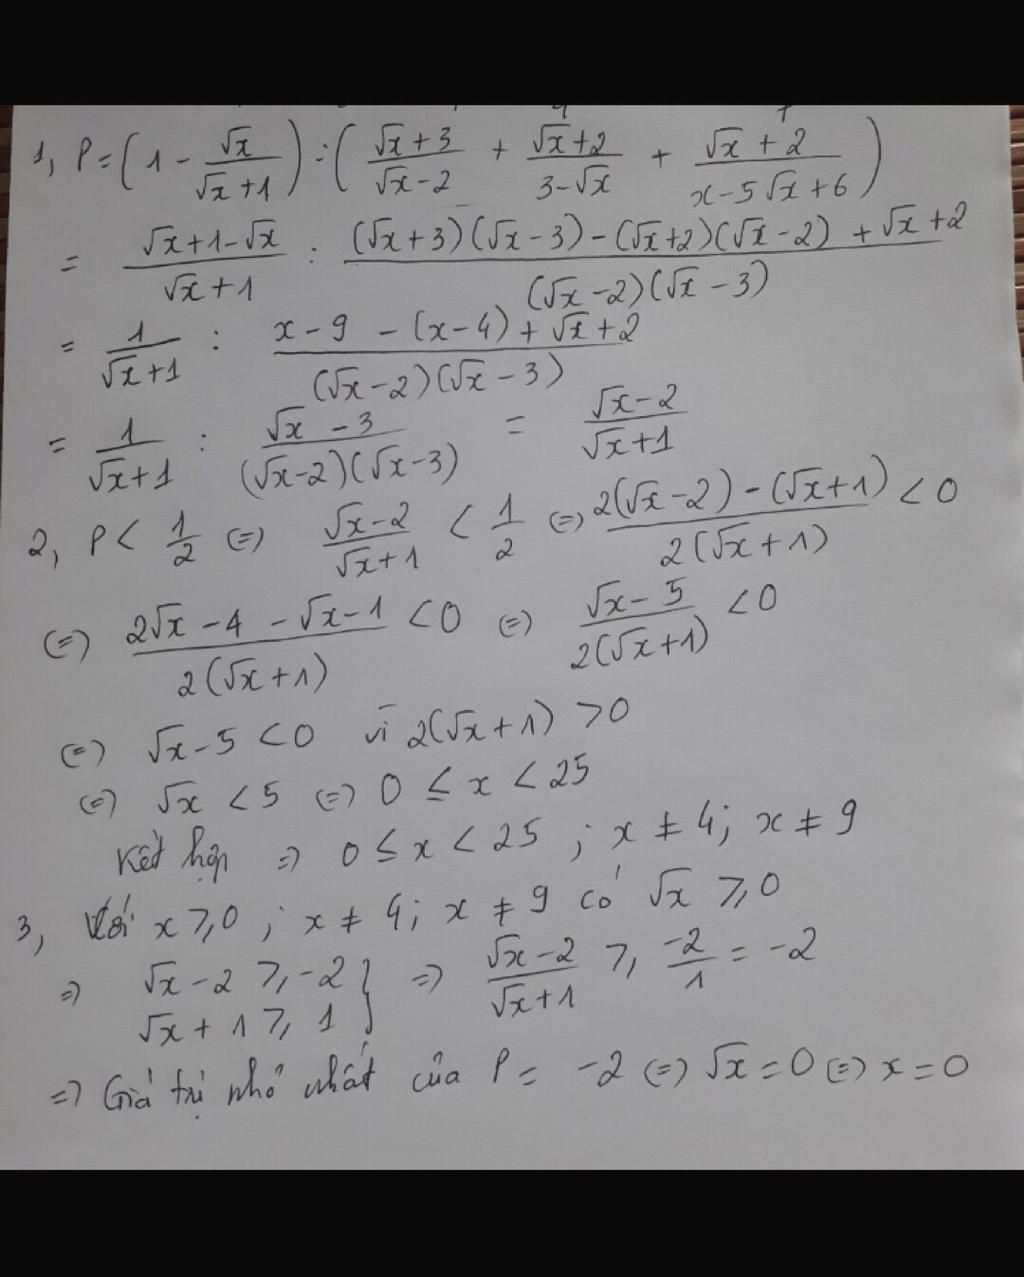 1, P = (1 - √x/(√x+1)) : ((√x+3)/(√x-2) + (√x+2)/(3-√x) + (√x+2)/(x-5√x+6))
= (√x+1-√x)/(√x+1) : ((√x+3)(√x-3) - (√x+2)(√x-2) + √x+2)/((√x-2)(√x-3))
= 1/(√x+1) : (x-9 - (x-4) + √x+2)/((√x-2)(√x-3))
= 1/(√x+1) : (√x-3)/((√x-2)(√x-3)) = (√x-2)/(√x+1)
2, P < 1/2 (=) (√x-2)/(√x+1) < 1/2 (=) (2(√x-2) - (√x+1))/(2(√x+1)) < 0
(=) (2√x-4-√x-1)/(2(√x+1)) < 0 (=) (√x-5)/(2(√x+1)) < 0
(=) √x-5 < 0 vì 2(√x+1) > 0
(=) √x < 5 (=) 0 ≤ x < 25
Kết hợp => 0 ≤ x < 25 ; x ≠ 4; x ≠ 9
3, Với x ≥ 0 ; x ≠ 4; x ≠ 9 có √x ≥ 0
=> √x-2 ≥ -2 } => (√x-2)/(√x+1) ≥ -2/1 = -2
√x+1 ≥ 1
=> Giá trị nhỏ nhất của P = -2 (=) √x = 0 (=) x = 0